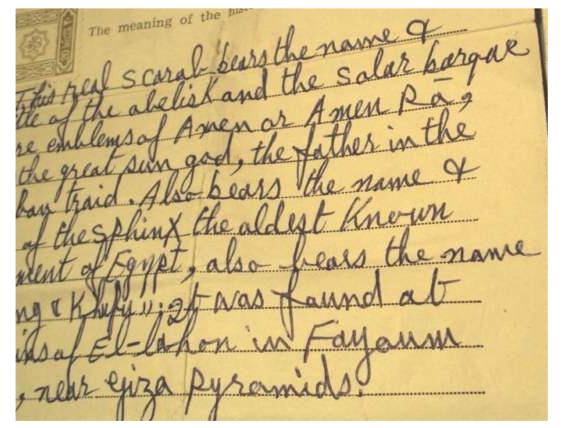 The meaning of the
This real scarab bears the name &
tle of the abelisk and the salar barque
re emblems of Amen or Amen Rā,
the great sun god, the father in the
ban traid. Also bears the name &
of the sphinx the aldest Known
ment of Egypt, also bears the name
ng "Khufu". It was faund at
ins of El-lahon in Fayoum
, near giza pyramids.